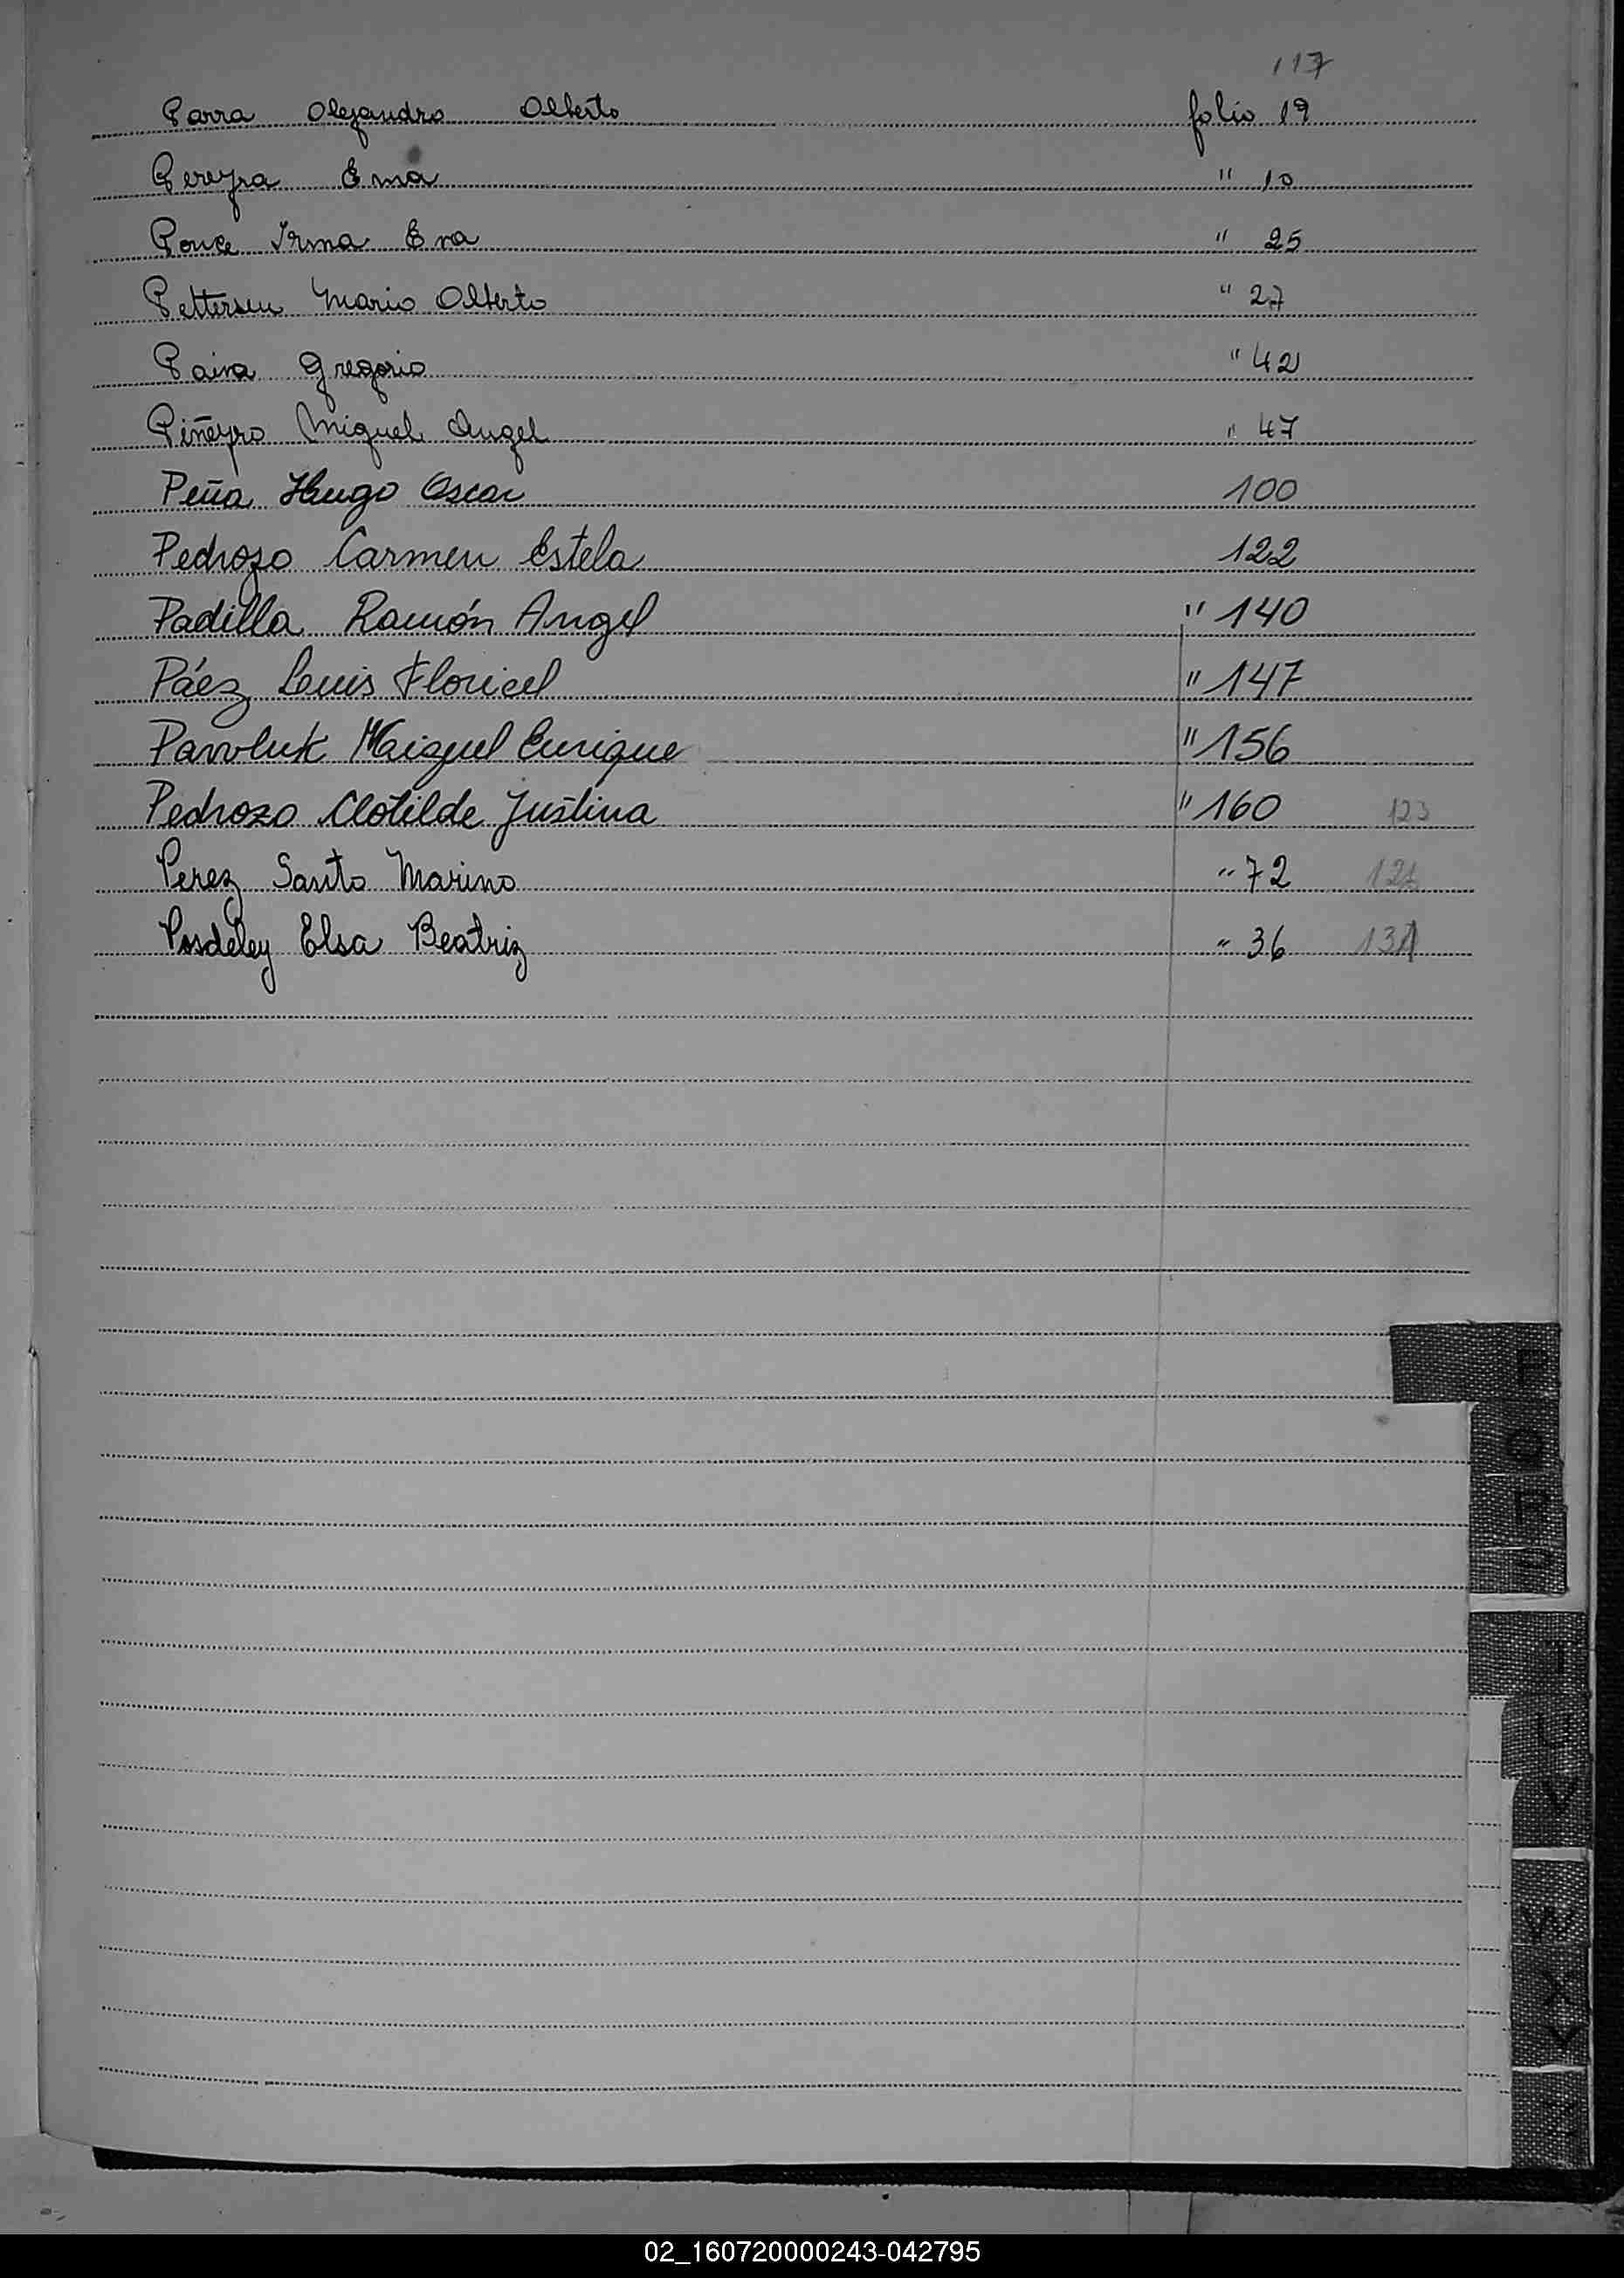 117
Parra Alejandro Alberto folio 19
Pereyra Ema " 10
Ponce Irma Eva " 25
Pettersen Mario Alberto " 27
Paiva Gregorio " 42
Piñeyro Miguel Angel " 47
Peña Hugo Oscar 100
Pedrozo Carmen Estela 122
Padilla Ramón Angel " 140
Páez Luis Floricel " 147
Pawluk Miguel Enrique " 156
Pedrozo Clotilde Justina " 160 123
Perez Santo Marino " 72
Posdeley Elsa Beatriz " 36
P
Q
R
S
T
U
V
W
X
Y
02_160720000243-042795